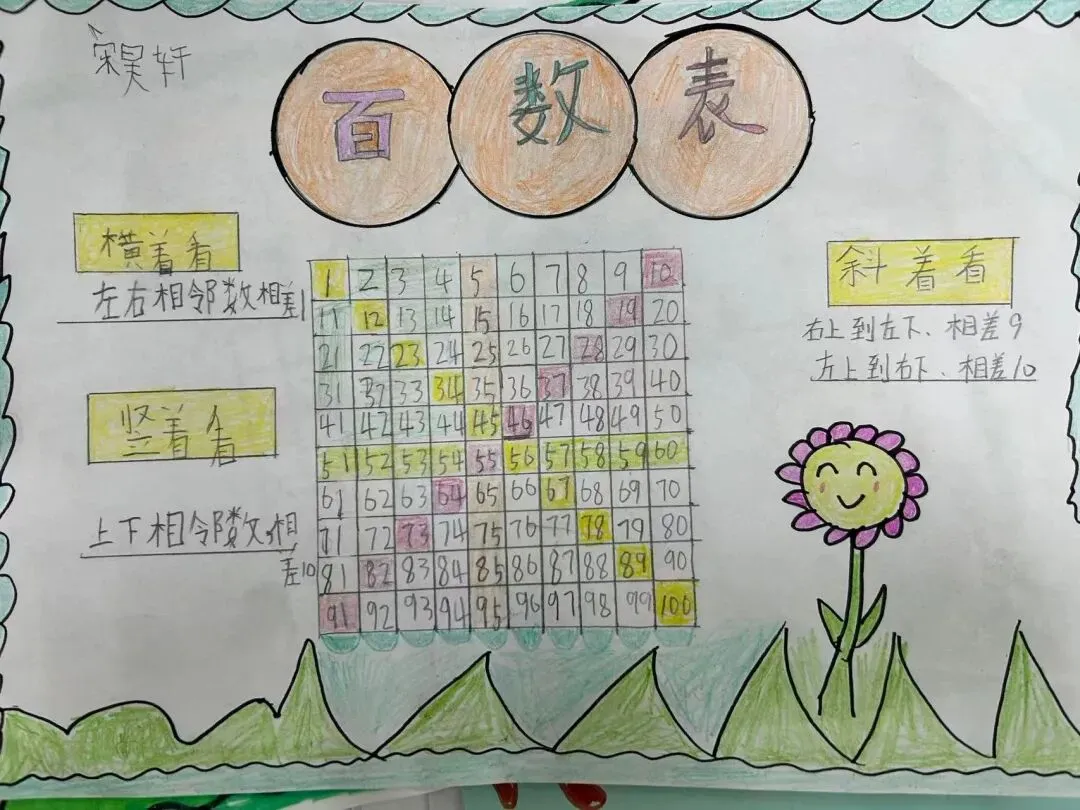 宋昊轩
百数表
横着看
左右相邻数相差1
竖着看
上下相邻数相
差10
斜着看
右上到左下、相差9
左上到右下、相差10
1 2 3 4 5 6 7 8 9 10
11 12 13 14 15 16 17 18 19 20
21 22 23 24 25 26 27 28 29 30
31 32 33 34 35 36 37 38 39 40
41 42 43 44 45 46 47 48 49 50
51 52 53 54 55 56 57 58 59 60
61 62 63 64 65 66 67 68 69 70
71 72 73 74 75 76 77 78 79 80
81 82 83 84 85 86 87 88 89 90
91 92 93 94 95 96 97 98 99 100